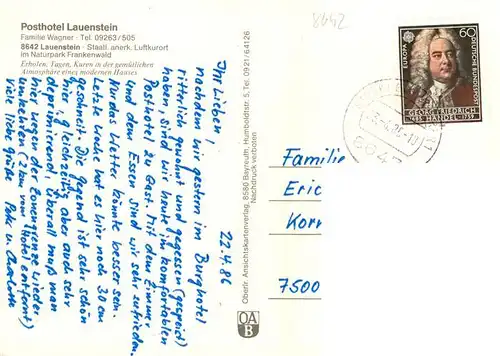 Posthotel Lauenstein
Familie Wagner · Tel. 09263/505
8642 Lauenstein · Staatl. anerk. Luftkurort
im Naturpark Frankenwald
Erholen, Tagen, Kuren in der gemütlichen
Atmosphäre eines modernen Hauses
22.4.86
Ihr Lieben!
nachdem wir gestern im Burghotel
ritterlich gewohnt und gegessen (gespeist)
haben, sind wir heute im komfortablen
Posthotel zu Gast. Mit dem Zimmer
und dem Essen sind wir sehr zufrieden.
Nur das Wetter könnte besser sein.
Letzte Woche hat es hier noch 30 cm
geschneit. Die Gegend ist sehr schön
hier, gleichzeitig aber auch sehr
deprimierend, überall muß man
hier wegen der Zonengrenze wieder
umkehren (2 km vom Hotel entfernt)
Viele liebe Grüße
Oberfr. Ansichtskartenverlag, 8580 Bayreuth, Humboldtstr. 5, Tel. 09 21/6 41 26
Nachdruck verboten
OA
B
8642
EUROPA
CEPT
60
DEUTSCHE BUNDESPOST
GEORG FRIEDRICH
HÄNDEL 1685-1759
Familie
Eric
Korr
7500